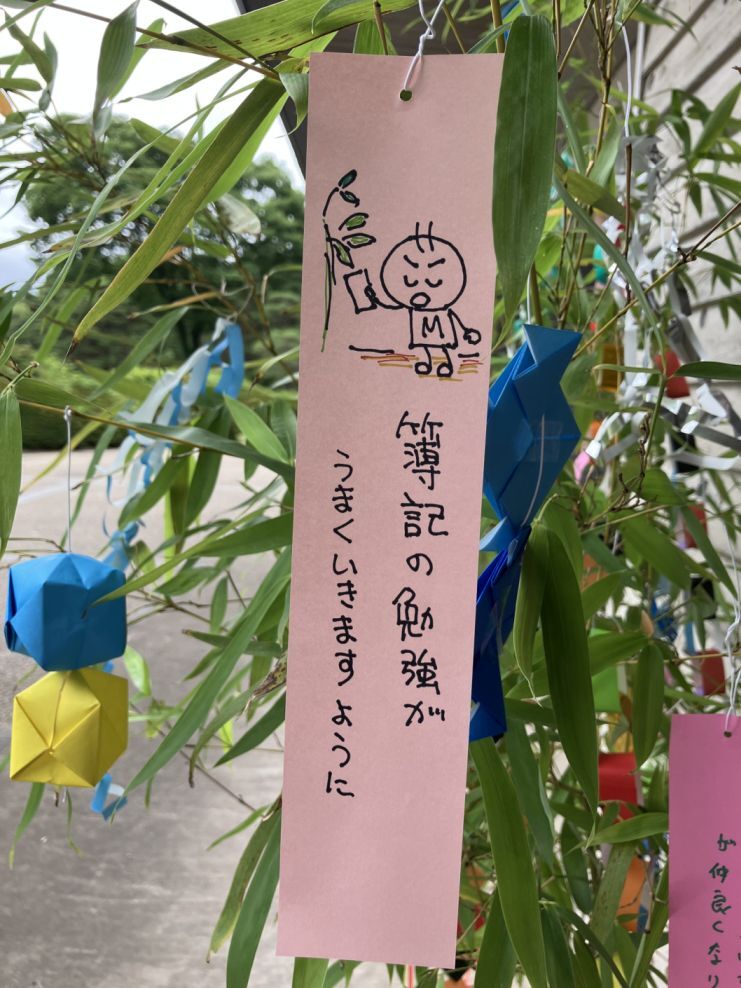 M
簿記の勉強が
うまくいきますように
が仲良くなり